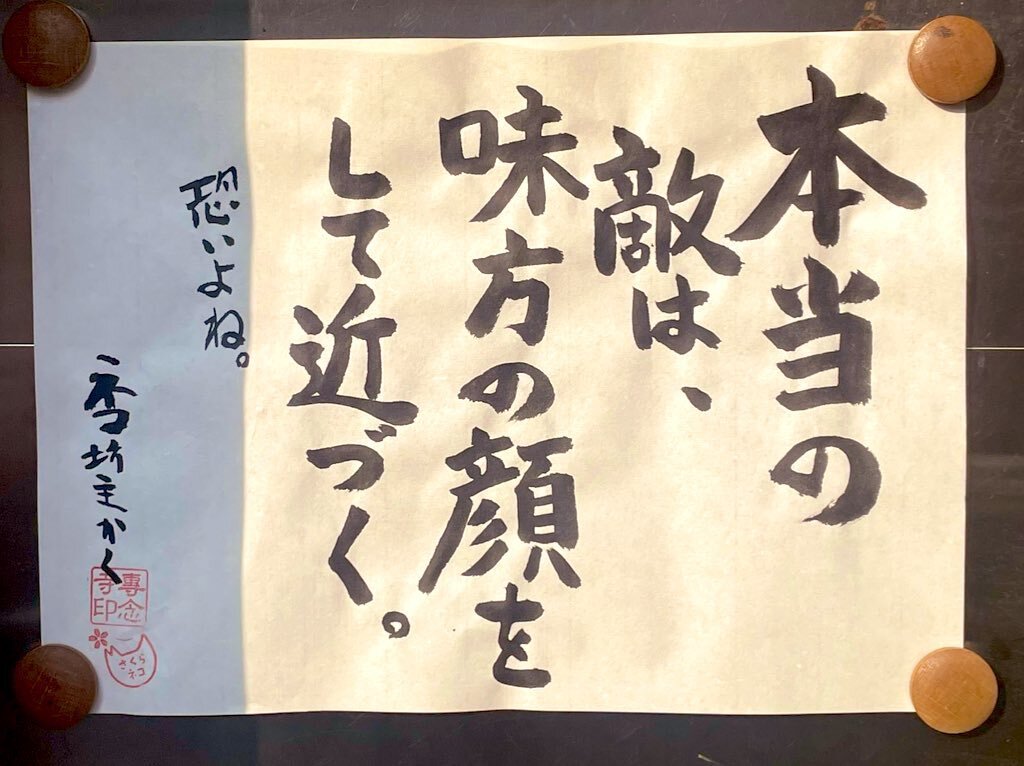 本当の
敵は、
味方の顔を
して近づく。
恐いよね。
坊主かく
專念
寺印
さくら
ネコ